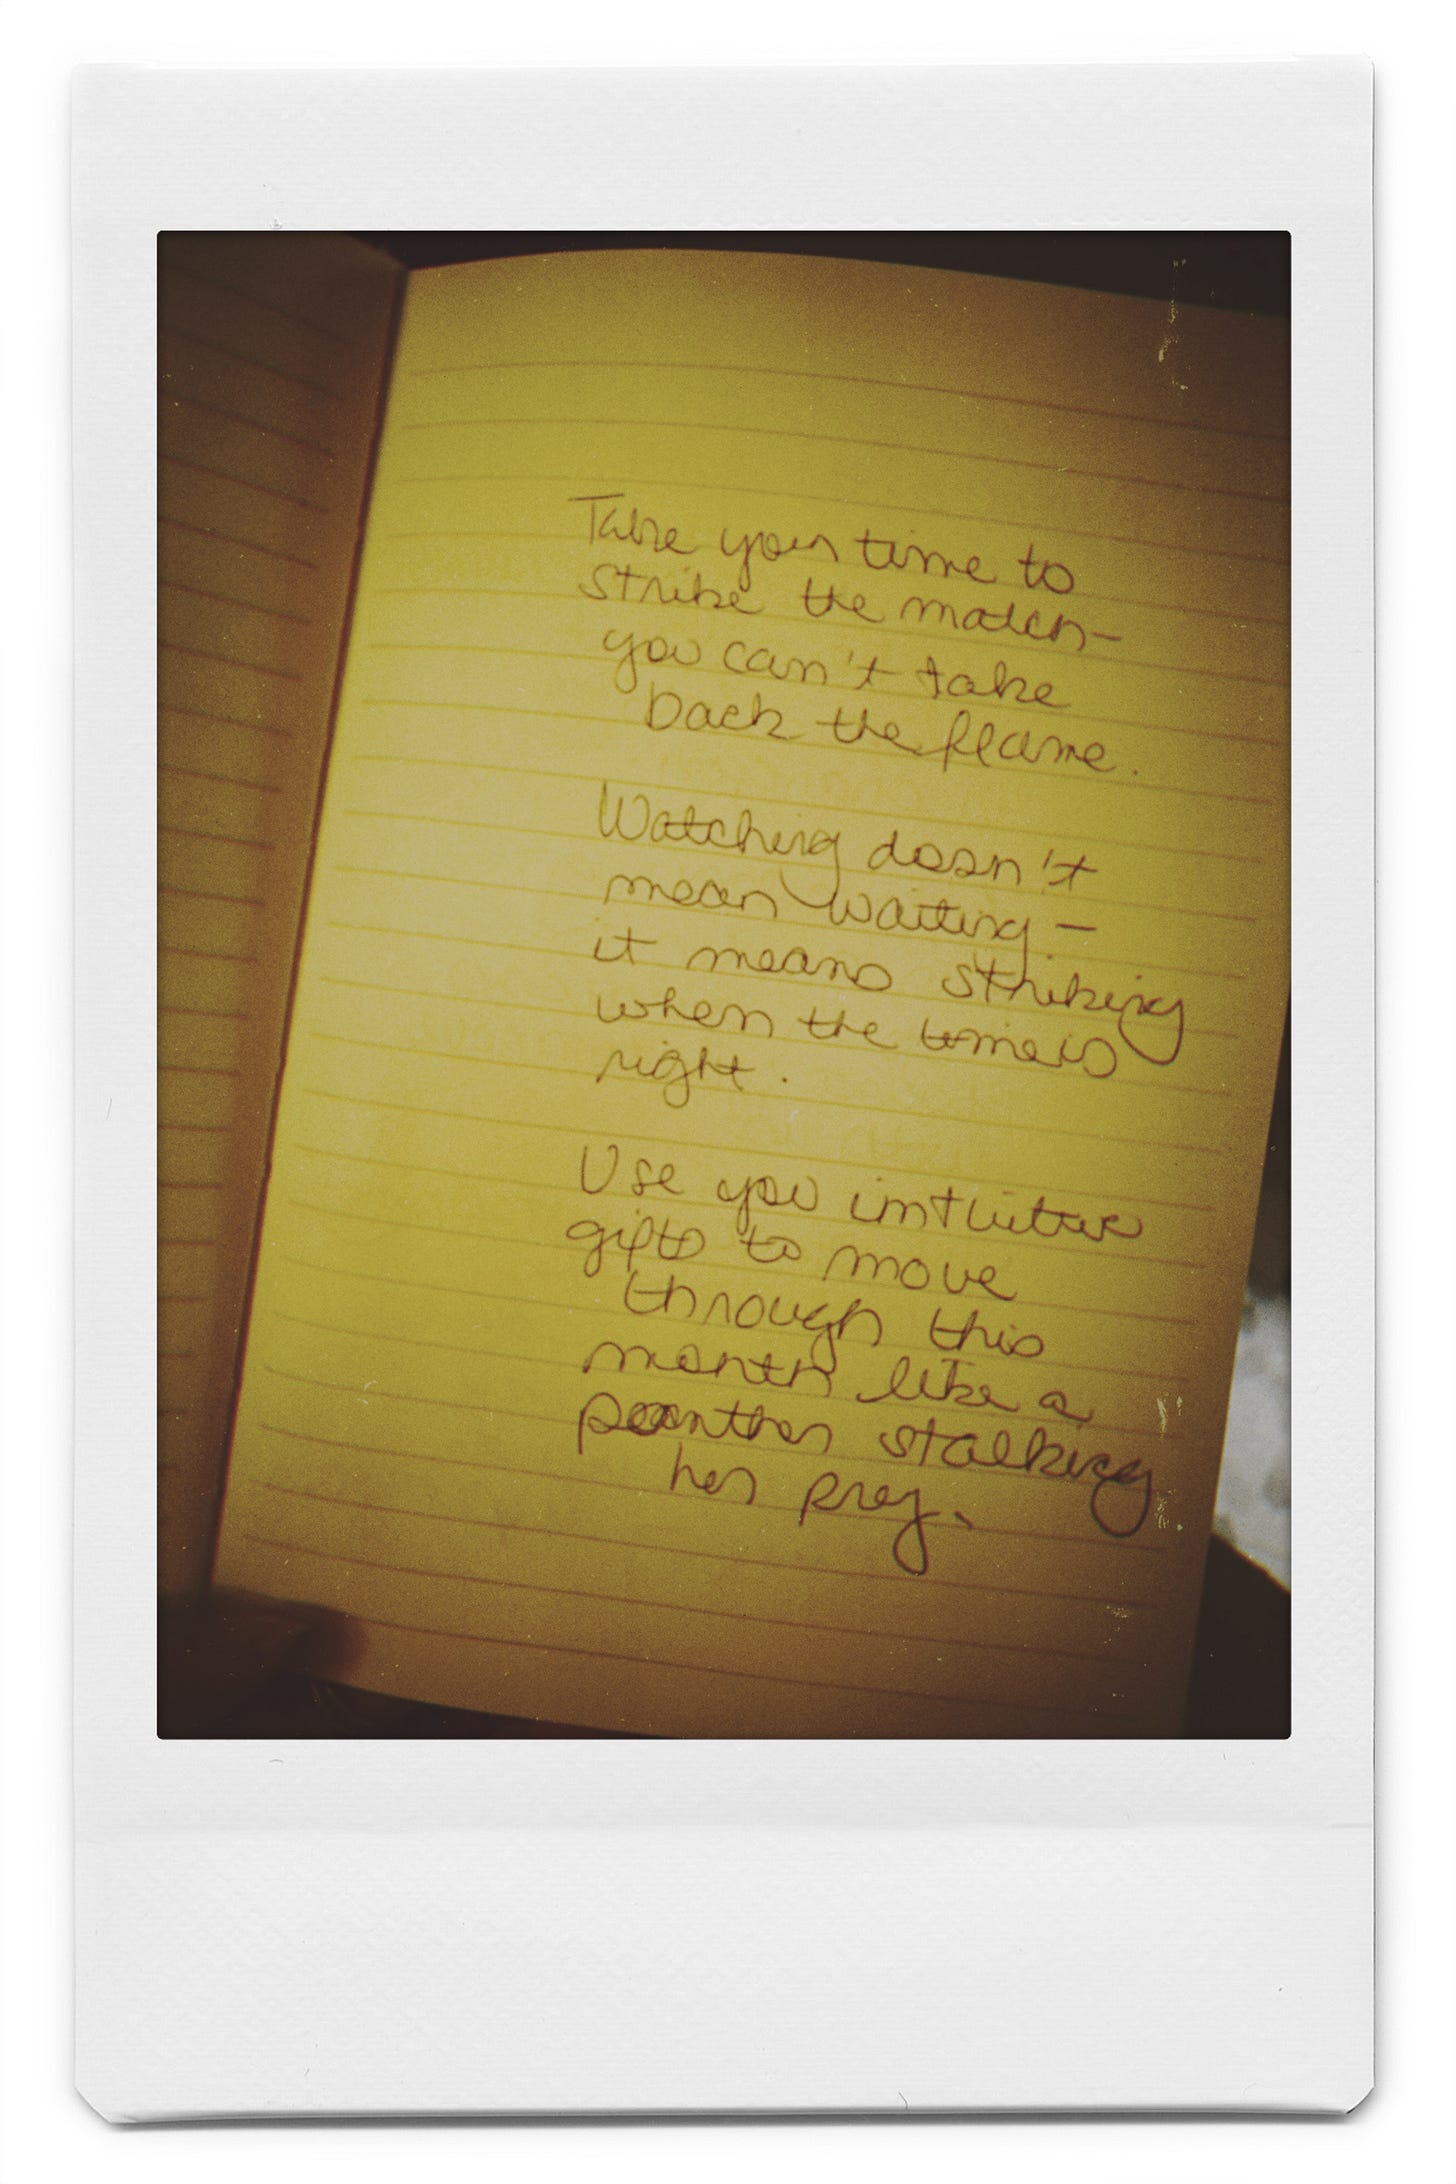 Take your time to
strike the match-
you can't take
back the flame.
Watching doesn't
mean waiting -
it means striking
when the time is
right.
Use you intuitive
gifts to move
through this
month like a
panther stalking
her prey.